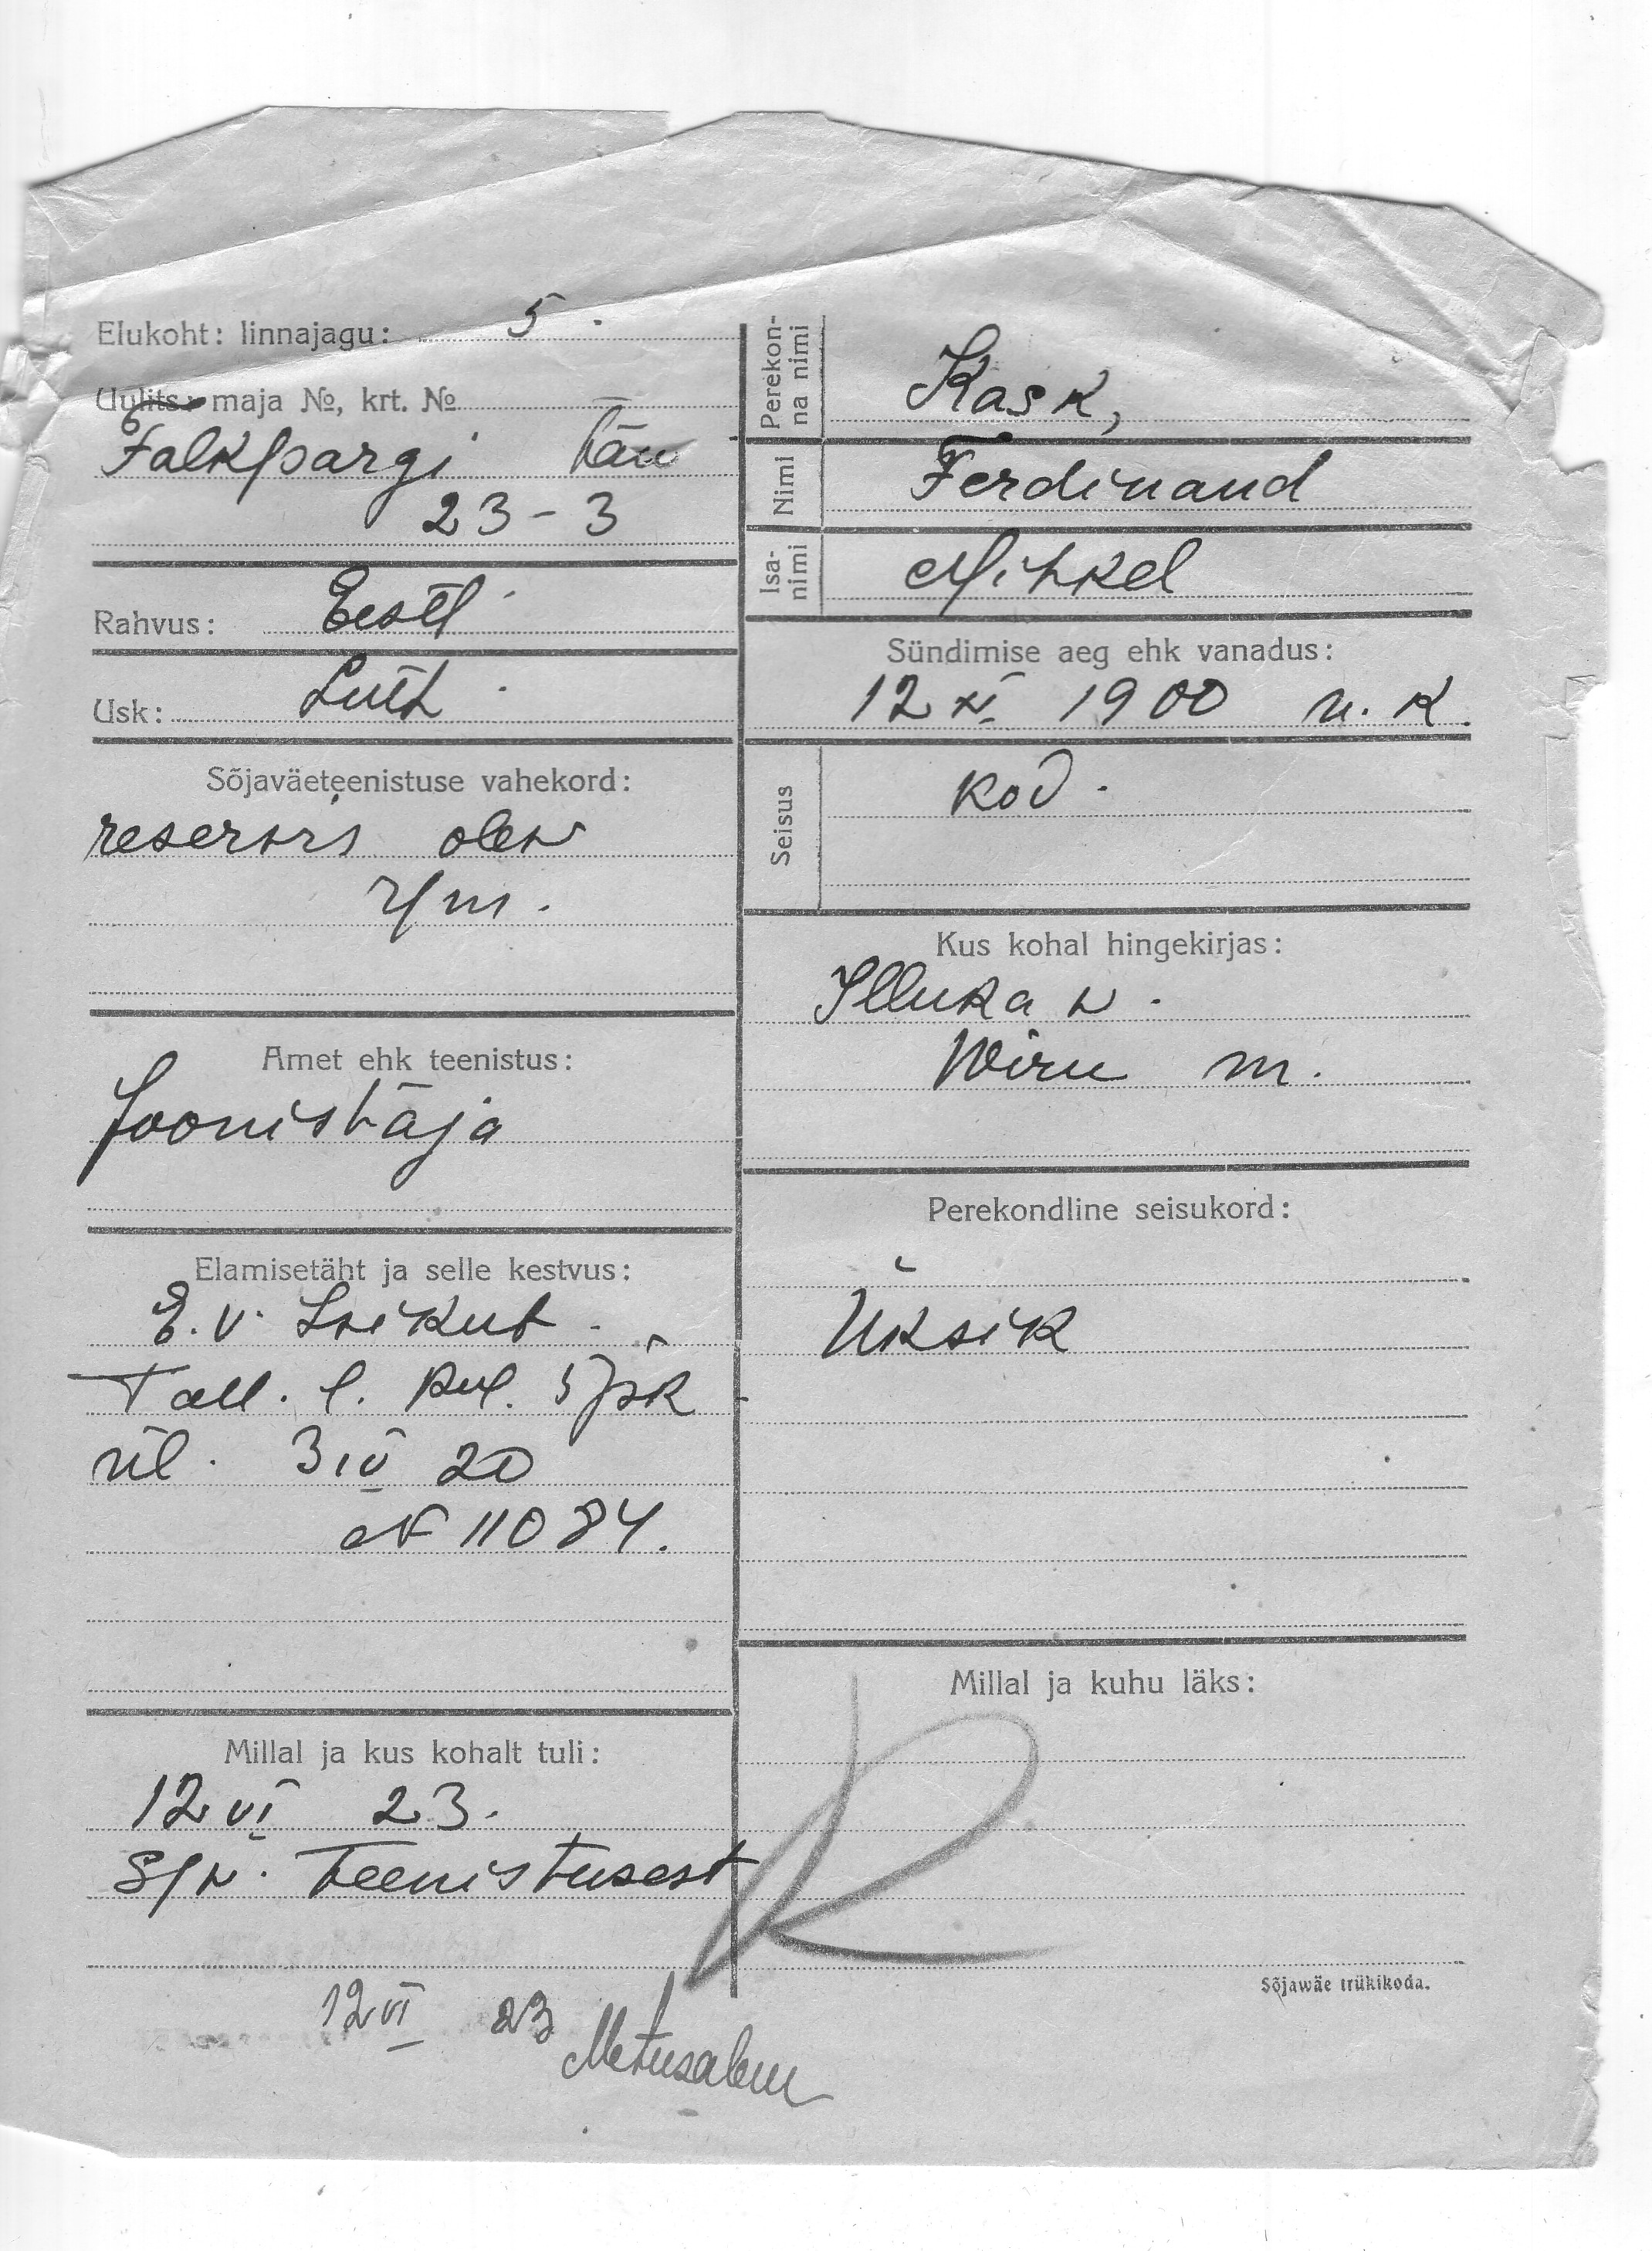 Elukoht: linnajagu: 5.
Uulits: maja №, krt. №
Falkpargi tän
23-3
Rahvus: Eesti
Usk: Luth.
Sõjaväeteenistuse vahekord:
reservis olev
r/m.
Amet ehk teenistus:
Joonistaja
Elamisetäht ja selle kestvus:
E.V. Isikut.
Tall. l. pol. 5 jsk
vil. 3 IV 20
N 11084.
Millal ja kus kohalt tuli:
12 VI 23.
S/v. teenistusest
12 VI 23
Perekon-
na nimi
Kask,
Nimi
Ferdinand
Isa-
nimi
Mihkel
Sündimise aeg ehk vanadus:
12 XI 1900 u. k.
Seisus
kod.
Kus kohal hingekirjas:
Illuka v.
Wiru m.
Perekondline seisukord:
Üksik
Millal ja kuhu läks:
K
Sõjawäe trükikoda.
Metusalem